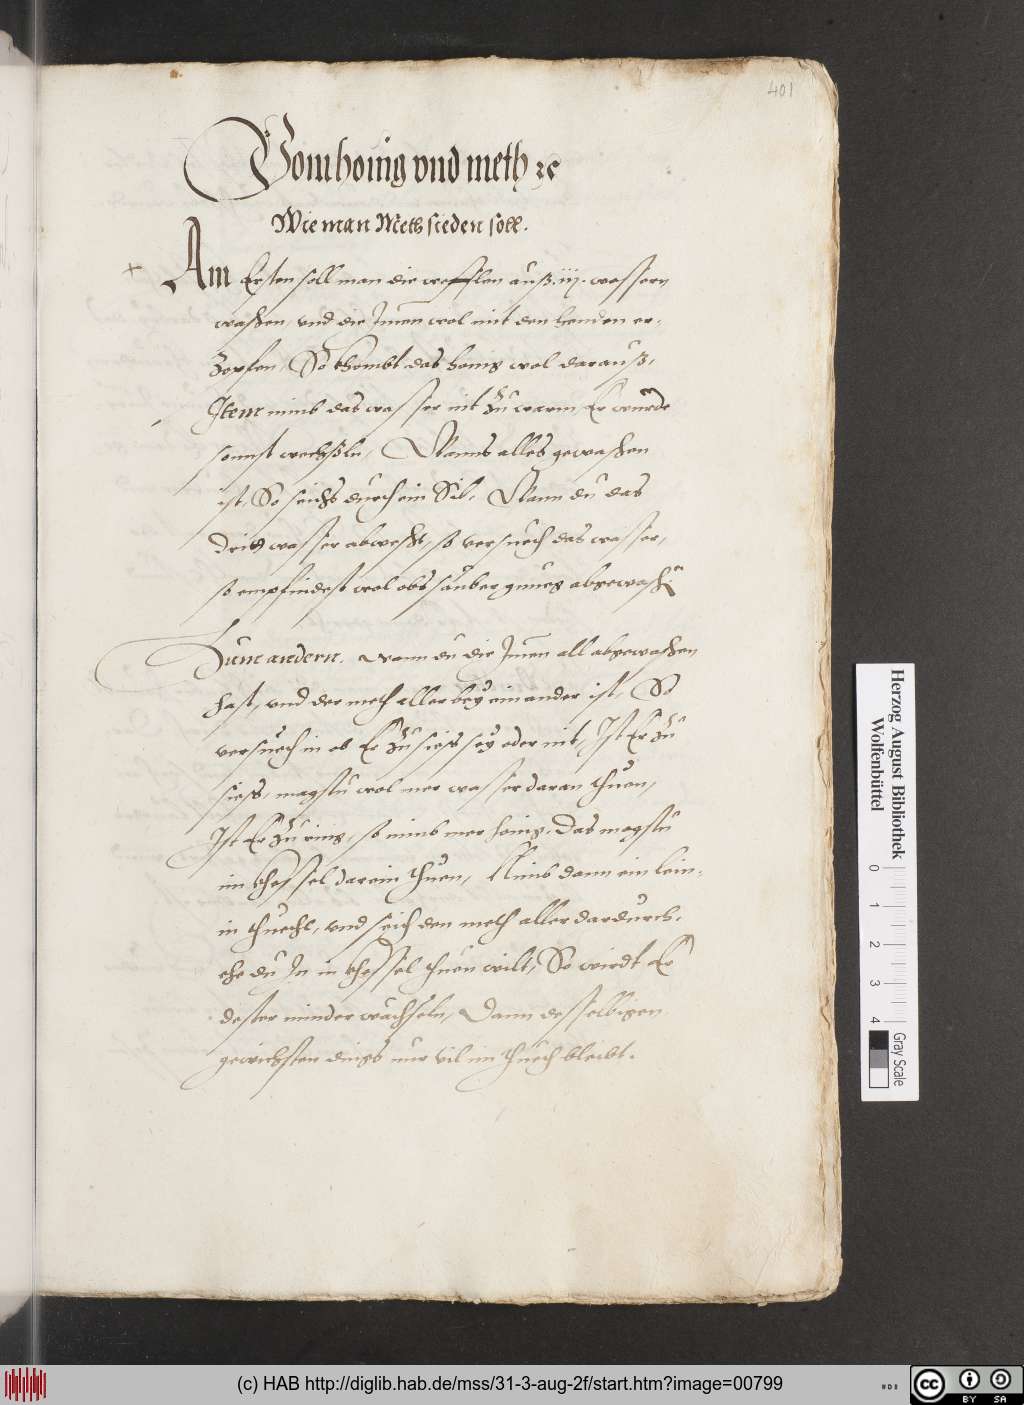 401
Vom honig vnd meth ꝛc
Wie man Meth sieden soll.
Am Ersten soll man die wefflen auß .iij. wassern
waschen, vnd die Imen wol mit den henden er-
Zopfen, So khombt das honig wol darauß,
Item nimb das wasser nit zu warm, Er wurde
sonnst wechßln, Wanns alles gewaschen
ist, So seichs durch ein Sib, Wann du das
dritt wasser abwescht, so versuech das wasser,
so empfindest wol obs sauber gnueg abgewaschē
Zum andern. wann du die Imen all abgewaschen
hast, vnd der meth aller bey einander ist, So
versuech in ob Er zu siess sey oder nit, Ist Er zu
siess, magstu wol mer wasser daran thuen,
Ist Er zu ring, so nimb mer honig, Das magstu
im khessel darein thuen, Nimb dann ein lein-
in thuech, vnd seich den meth aller dardurch,
ehe du In in khessel thuen wilt, So wirdt Er
dester minder wächseln, Dann desselbigen
gewichsten dings nur vil im thuech bleibt.
Herzog August Bibliothek
Wolfenbüttel
0 1 2 3 4
Gray Scale
(c) HAB http://diglib.hab.de/mss/31-3-aug-2f/start.htm?image=00799
cc BY SA